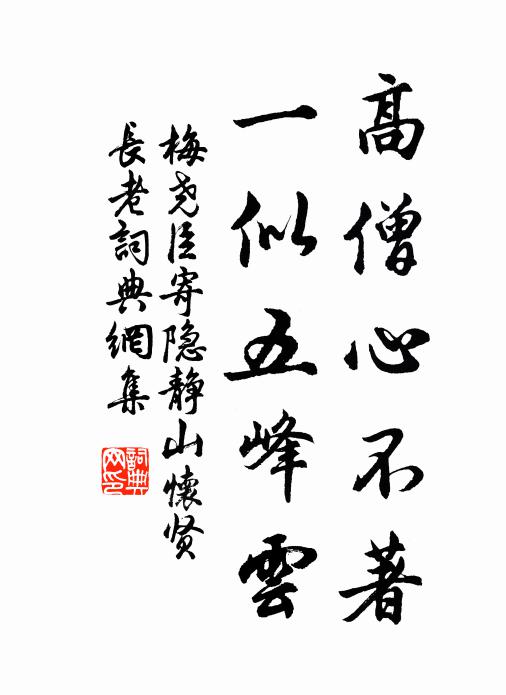 高僧心不著
一似五峰雲
梅尧臣寄隐静山懷贤
長老詞典網集
詞典网印